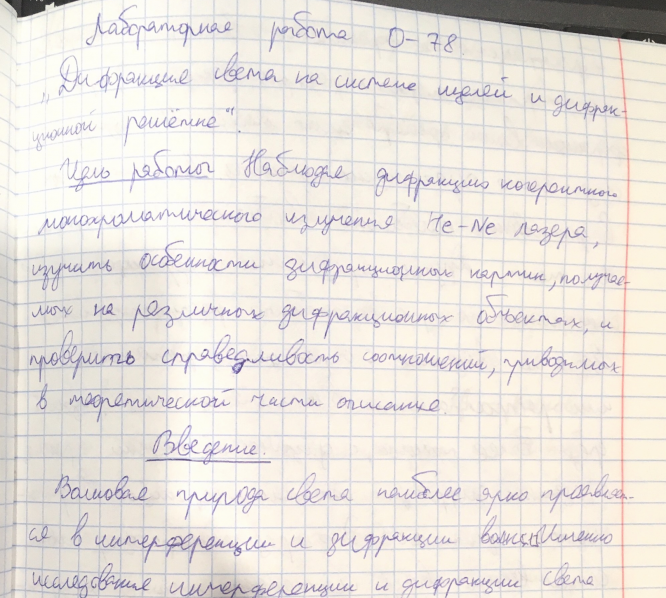 Лабораторная работа О-78.
„Дифракция света на системе щелей и дифрак-
ционной решётке".
Цель работы Наблюдая дифракцию когерентного
монохроматического излучения He-Ne лазера,
изучить особенности дифракционных картин, получае-
мых на различных дифракционных объектах, и
проверить справедливость соотношений, приводимых
в теоретической части описания.
Введение.
Волновая природа света наиболее ярко проявляет-
ся в интерференции и дифракции волн. Именно
исследование интерференции и дифракции света